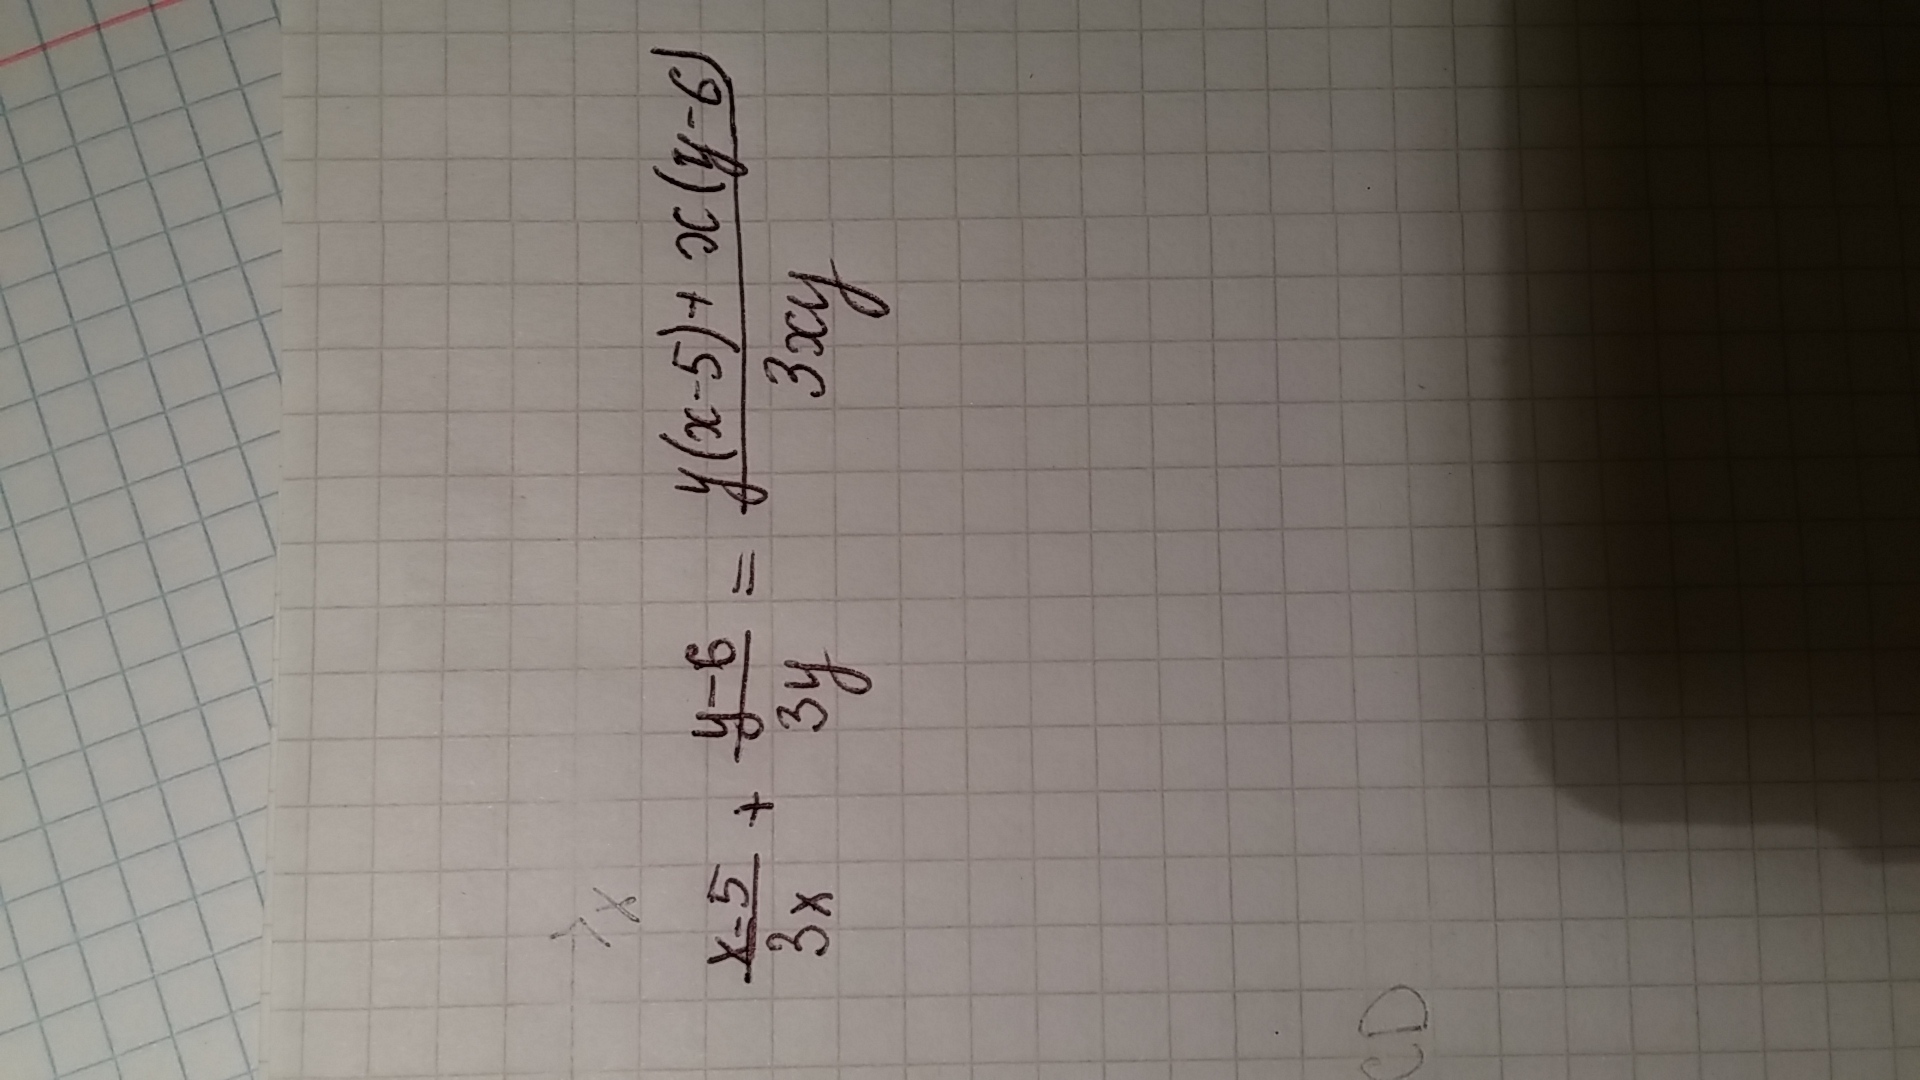 7x
x-5/3x + y-6/3y = y(x-5)+x(y-6)/3xy
CD